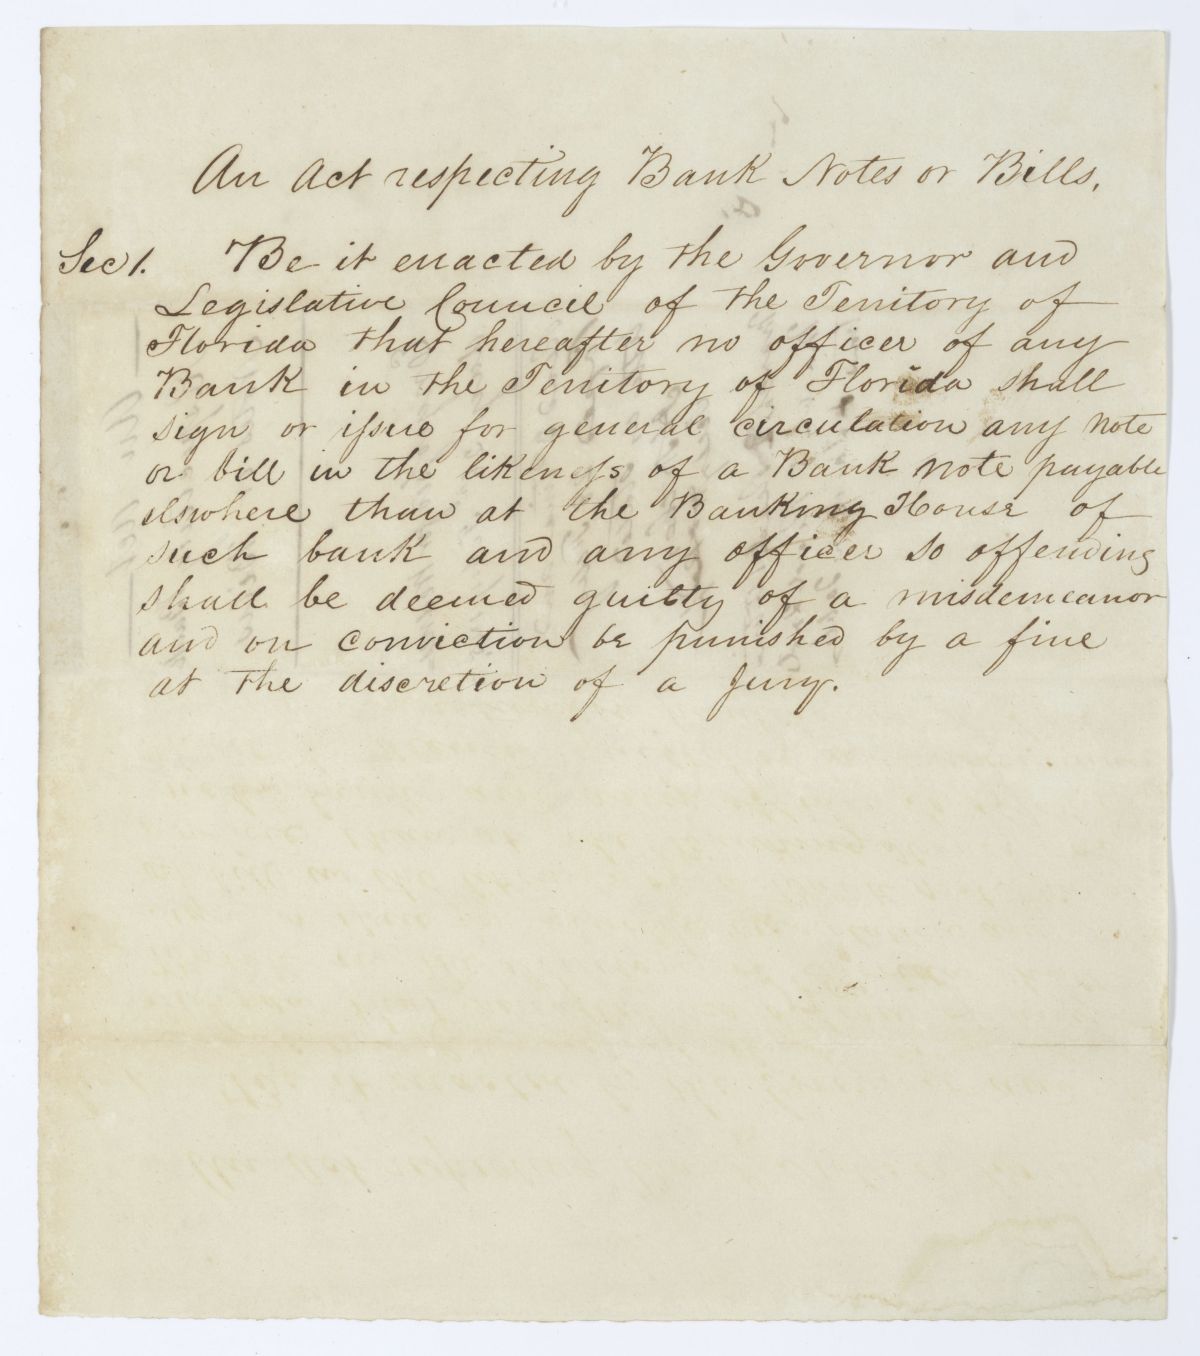 An Act respecting Bank Notes or Bills.
Sec 1. Be it enacted by the Governor and
Legislative Council of the Territory of
Florida that hereafter no officer of any
Bank in the Territory of Florida shall
sign or issue for general circulation any note
or bill in the likeness of a Bank note payable
elswhere than at the Banking House of
such bank and any officer so offending
shall be deemed guilty of a misdemeanor
and on conviction be punished by a fine
at the discretion of a Jury.